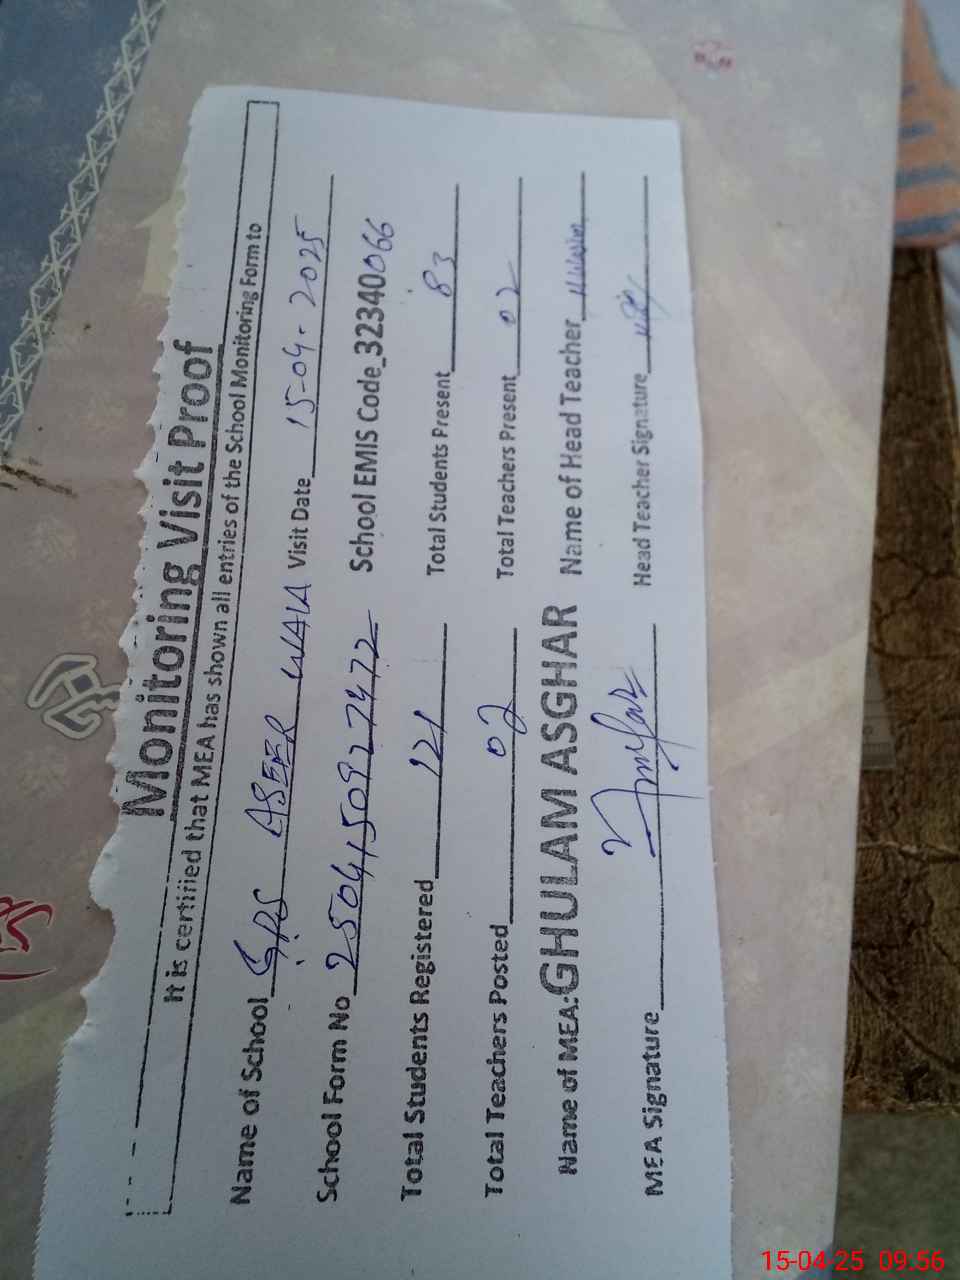 Monitoring Visit Proof
It is certified that MEA has shown all entries of the School Monitoring Form to
Name of School GPS ASEER WALA Visit Date 15-04-2025
School Form No 2504150927472 School EMIS Code 32340066
Total Students Registered 121 Total Students Present 83
Total Teachers Posted 02 Total Teachers Present 02
Name of MEA: GHULAM ASGHAR Name of Head Teacher
MEA Signature Head Teacher Signature
15-04-25 09:56